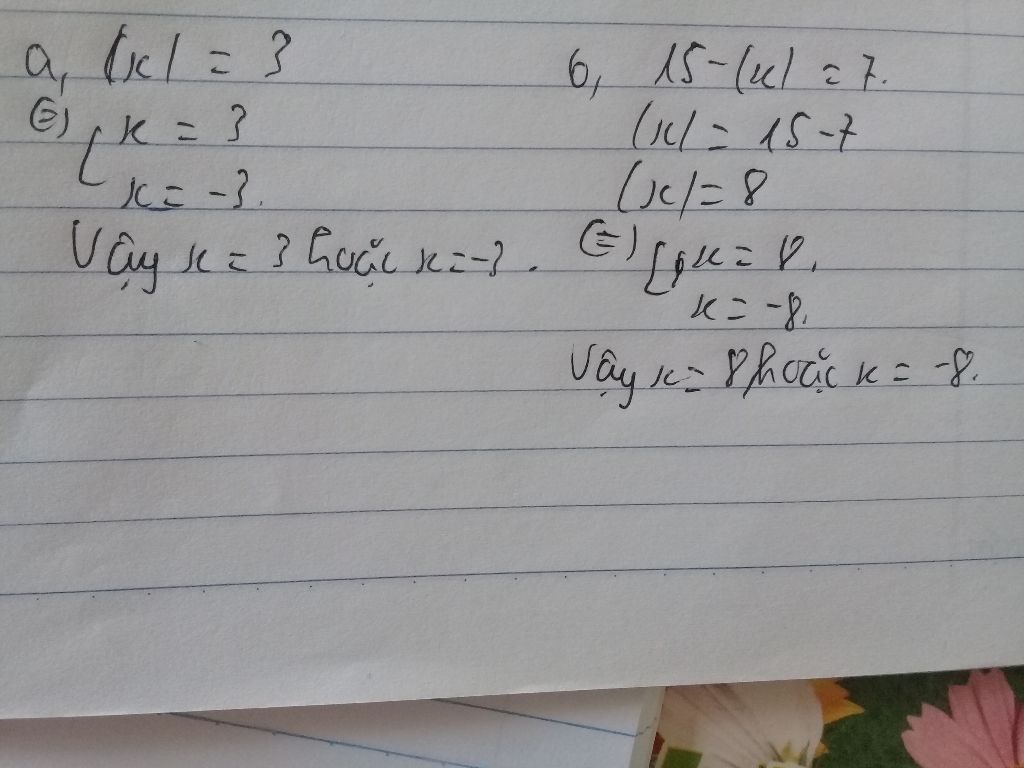 a, |x| = 3
⇔ [ x = 3
x = -3.
Vậy x = 3 hoặc x = -3.
b, 15 - |x| = 7.
|x| = 15 - 7
|x| = 8
⇔ [ x = 8.
x = -8.
Vậy x = 8 hoặc x = -8.